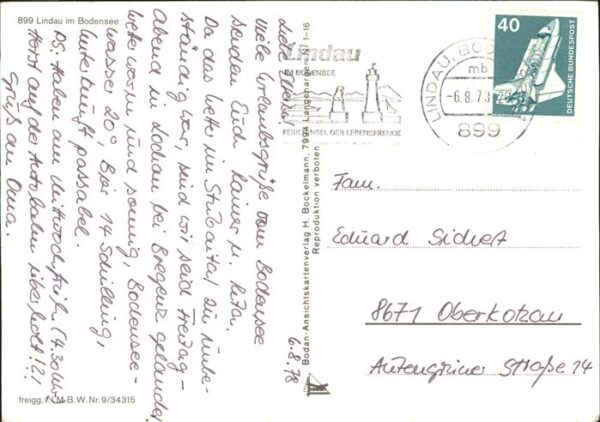 899 Lindau im Bodensee
6.8.78
viele Urlaubsgrüße vom Bodensee
senden Euch Rainer u. Rita.
Da das Wetter im Stubaital zu unbe-
ständig war, sind wir seid Freitag-
Abend in Lochau bei Bregenz gelandet.
Wetter warm und sonnig, Bodensee-
wasser 20°, Bier 14 Schilling,
Unterkunft passabel.
PS. Haben am Mittwoch früh (4.30 Uhr)
Horst auf der Autobahn überholt!?!
Gruß an Oma.
freigg. R.I.M.B.W.Nr.9/34315
Bodan-Ansichtskartenverlag H. Bockelmann, 7994 Langenargen N 1-16
Reproduktion verboten
Lindau
IM BODENSEE
FERIENINSEL DER LEBENSFREUDE
LINDAU, BOD
mb
-6.8.78
899
40
DEUTSCHE BUNDESPOST
Fam.
Eduard Sichert
8671 Oberkotzau
Autengrüner Straße 14